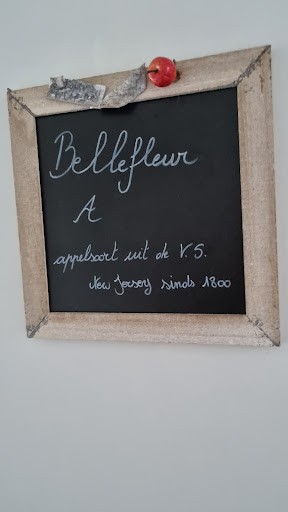 Bellefleur
A
appelsoort uit de V.S.
New Jersey sinds 1800